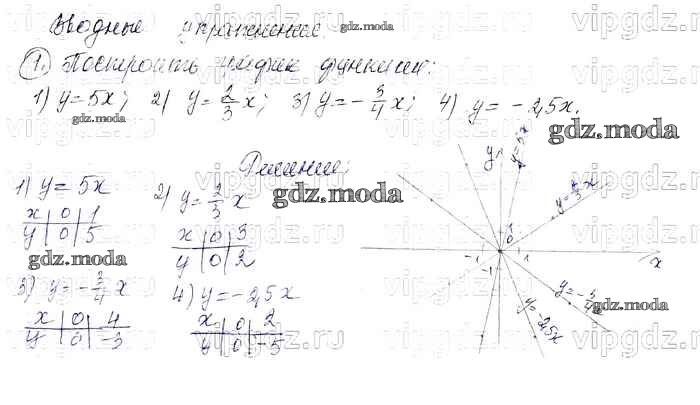 Вводные упражнения
1. Построить график функции:
1) y = 5x; 2) y = 2/3 x; 3) y = -3/4 x; 4) y = -2,5x.
Решение:
1) y = 5x
x 0 1
y 0 5
2) y = 2/3 x
x 0 3
y 0 2
3) y = -3/4 x
x 0 4
y 0 -3
4) y = -2,5x
x 0 2
y 0 -5
y
y = 5x
y = 2/3 x
-1 0 1
-1
x
y = -3/4
y = -2,5x
gdz.moda
gdz.moda
gdz.moda
gdz.moda
gdz.moda
gdz.moda
vipgdz.ru